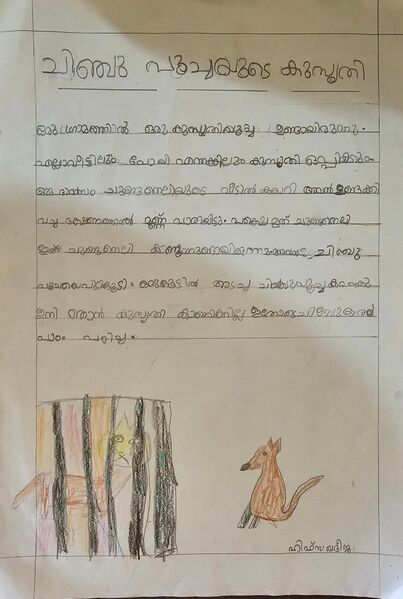 ചിഞ്ചു പൂച്ചയുടെ കുസൃതി
ഒരു ഗ്രാമത്തിൽ ഒരു കുസൃതിപൂച്ച ഉണ്ടായിരുന്നു.
എല്ലാവീട്ടിലും പോയി എന്തെങ്കിലും കുസൃതി ഒപ്പിക്കും.
ഒരു ദിവസം ചുണ്ടെനെലിയുടെ വീടിൽ കയറി അവൻ ഉണ്ടക്കി
വച്ച ഭക്ഷണത്തിൽ മണ്ണ് വാരിയിട്ടും. പക്ഷെ ഇത് ചുണ്ടനെലി
ഇത് ചുണ്ടെനെലി കണ്ടുന്നുണ്ടായിരുന്നു ചിഞ്ചു
പൂച്ചയെപിടികൂടി. കൂട്ടിൽ അടച്ചു ചിഞ്ചുപൂച്ച കരഞ്ഞു
ഇനി ഞാൻ കുസൃതി കാണിക്കില്ല
പാഠം പഠിച്ചു.
ഹിഫ്സ ഖദീജ.